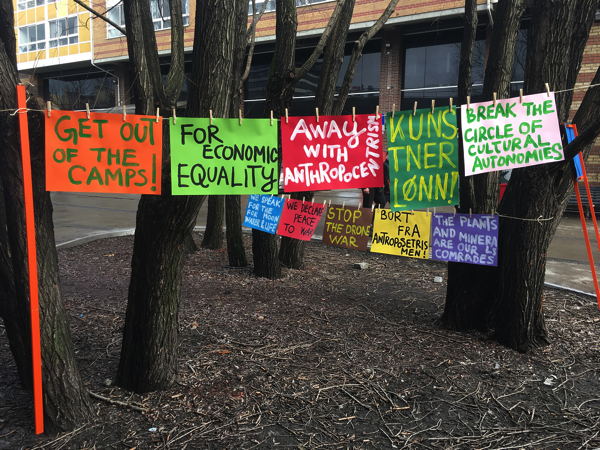 GET OUT
OF THE
CAMPS!
FOR
ECONOMIC
EQUALITY
AWAY
WITH
ANTHROPOCENTRISM
KUNS
TNER
LØNN!
BREAK THE
CIRCLE OF
CULTURAL
AUTONOMIES
WE SPEAK
FOR THE
FOR MOON
WATER & LIFE
WE DECLARE
PEACE
TO WAR
STOP
THE DRONE
WAR
BORT
FRA
ANTROPSETRIS
MEN!
THE PLANTS
AND
MINERA
LS
ARE OUR
COMRADES